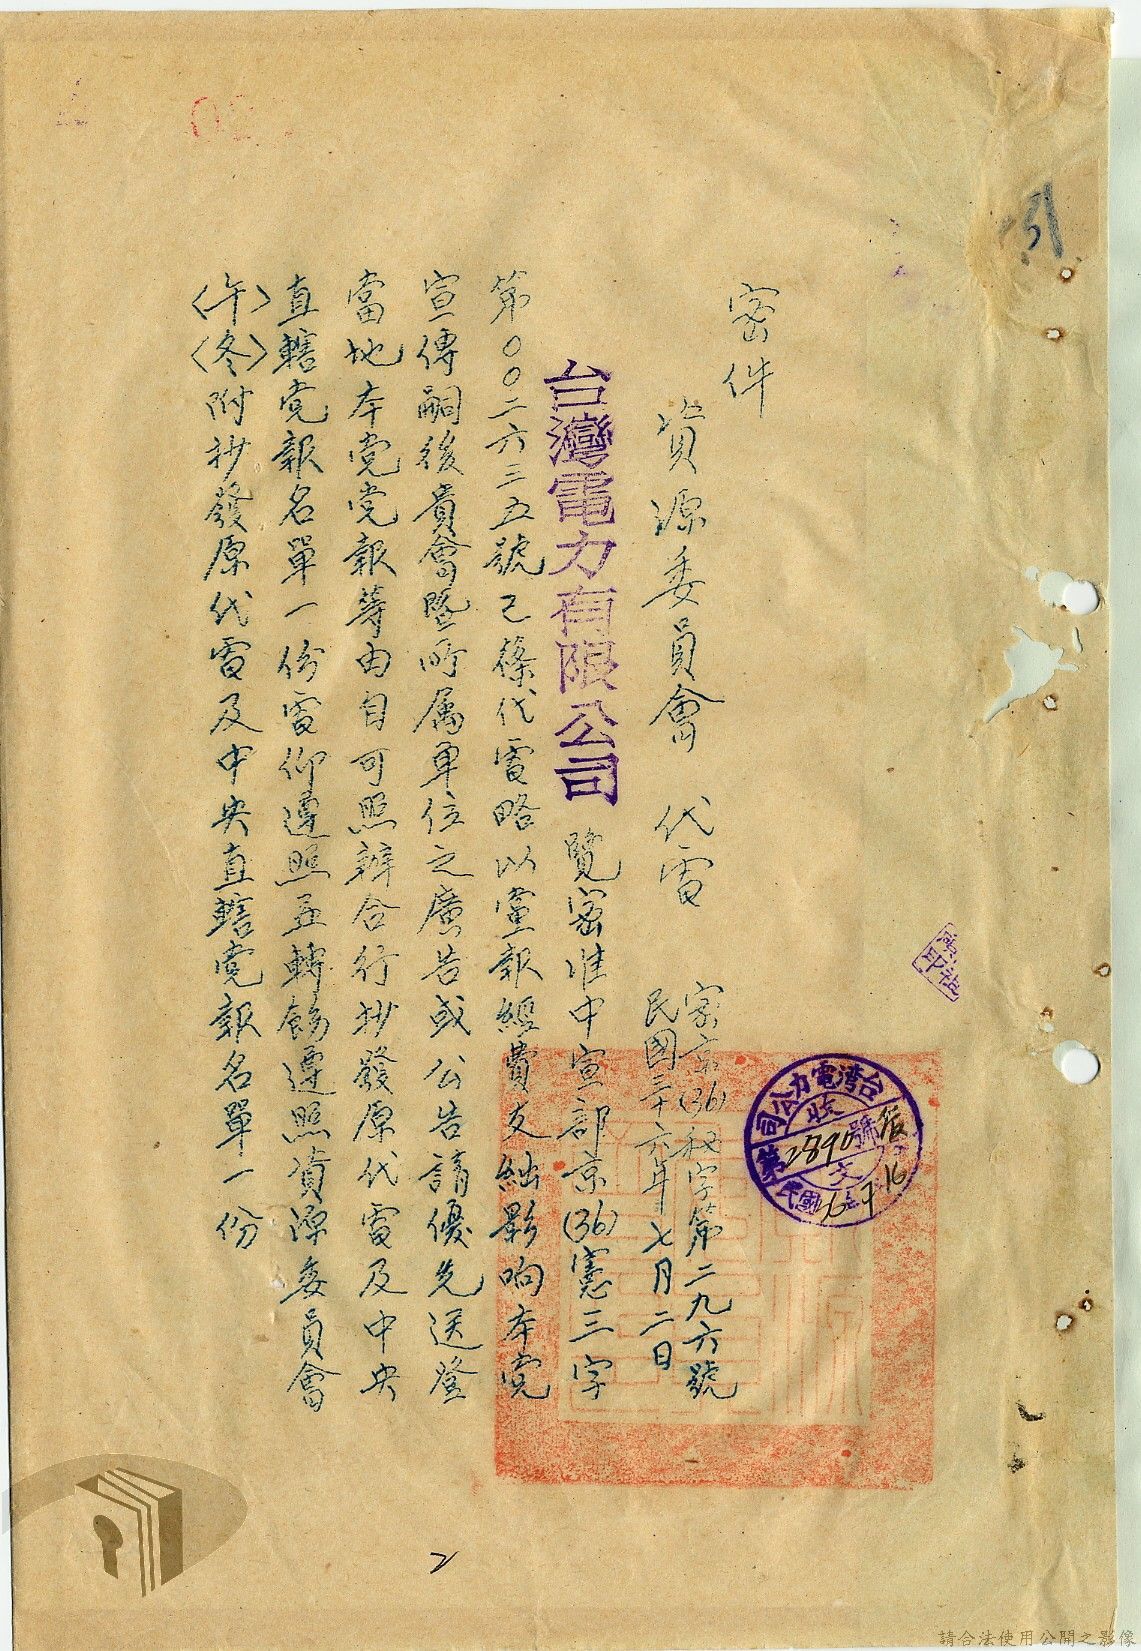 密件
資源委員會　代電
京(36)秘字第二九六號
民國三十六年七月二日
台灣電力有限公司　覽密准中宣部京(36)憲三字
第００二六三五號已篠代電略以黨報經費支絀影响本党
宣傳嗣後貴會暨所属單位之廣告或公告請優先送登
當地本党党報等由自可照辦合行抄發原代電及中央
直轄党報名單一份電仰遵照並轉飭遵照資源委員會
〈午〉〈冬〉附抄發原代電及中央直轄党報名單一份
台灣電力公司
收文
第2890號
民國36年7 16
2
請合法使用公開之影像